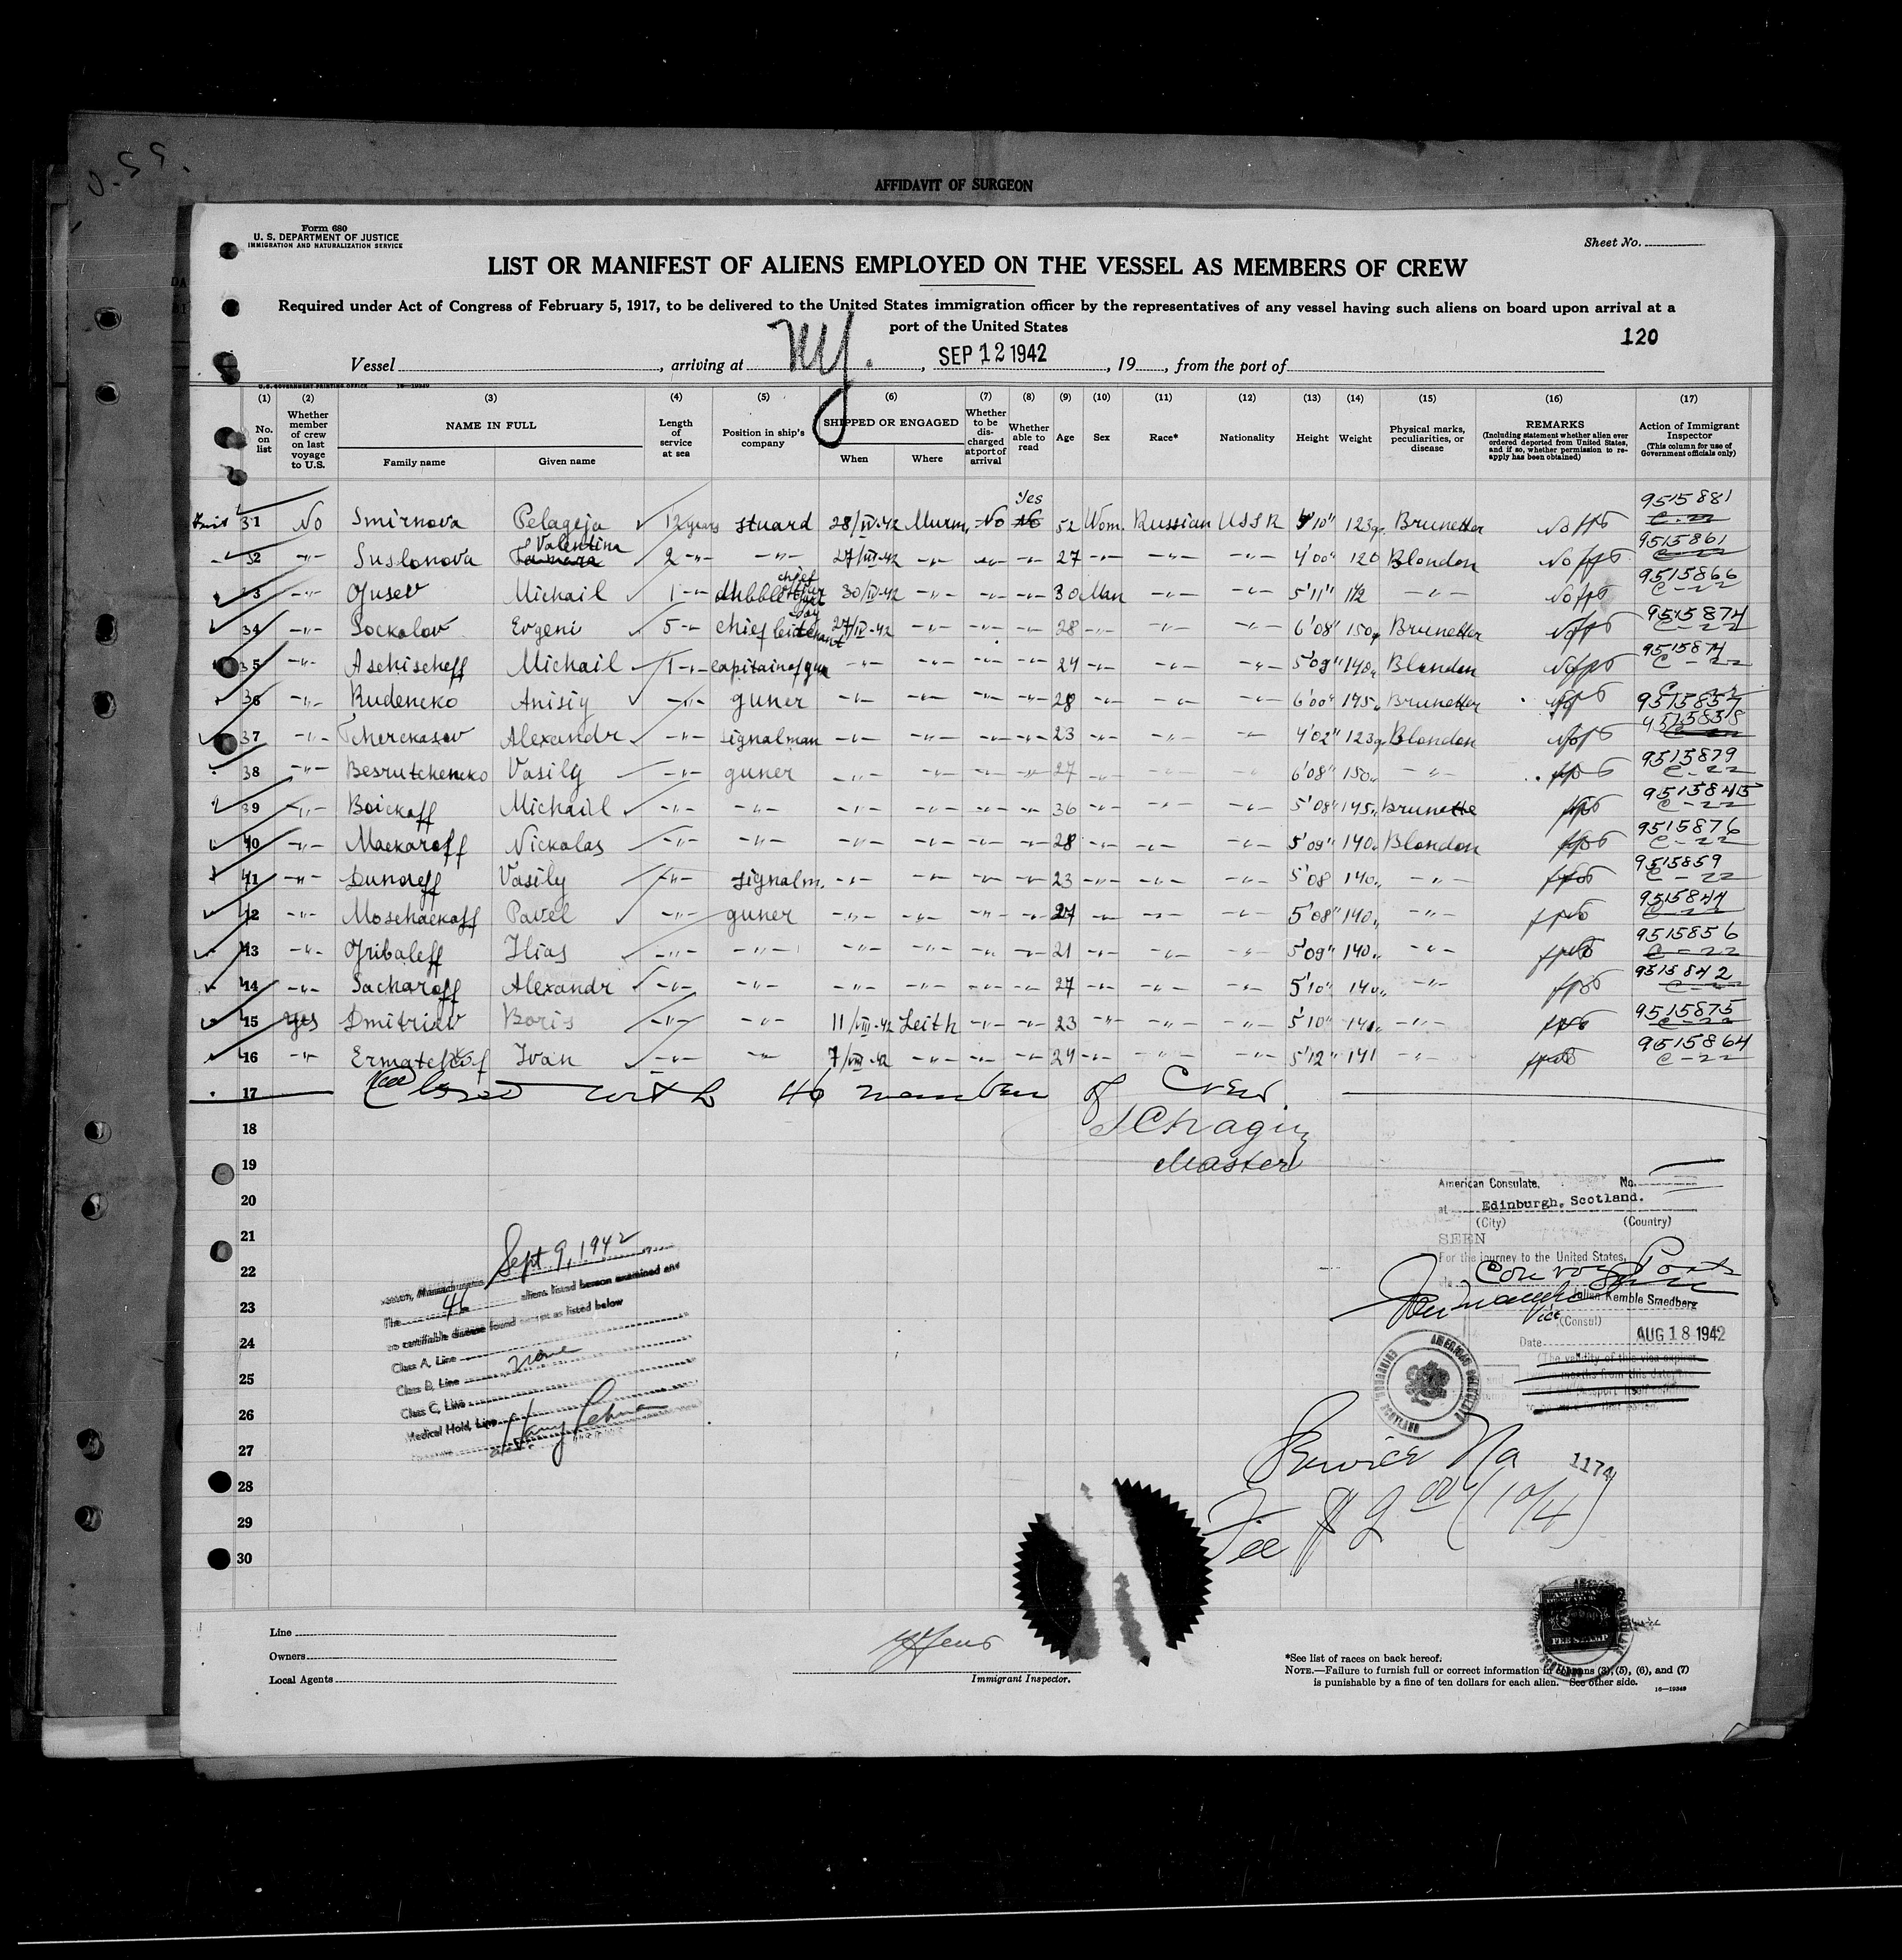 AFFIDAVIT OF SURGEON
Form 680
U. S. DEPARTMENT OF JUSTICE
IMMIGRATION AND NATURALIZATION SERVICE
Sheet No.
LIST OR MANIFEST OF ALIENS EMPLOYED ON THE VESSEL AS MEMBERS OF CREW
Required under Act of Congress of February 5, 1917, to be delivered to the United States immigration officer by the representatives of any vessel having such aliens on board upon arrival at a
port of the United States
120
Vessel , arriving at NY. , SEP 12 1942 , 19 , from the port of
U. S. GOVERNMENT PRINTING OFFICE 16—19349
(1) (2) (3) (4) (5) (6) (7) (8) (9) (10) (11) (12) (13) (14) (15) (16) (17)
No. on list
Whether member of crew on last voyage to U.S.
NAME IN FULL
Family name Given name
Length of service at sea
Position in ship's company
SHIPPED OR ENGAGED
When Where
Whether to be discharged at port of arrival
Whether able to read
Age
Sex
Race*
Nationality
Height
Weight
Physical marks, peculiarities, or disease
REMARKS
(Including statement whether alien ever ordered deported from United States, and if so, whether permission to re-apply has been obtained)
Action of Immigrant Inspector
(This column for use of Government officials only)
Yes 9515881
31 No Smirnova Pelageja 12 years stuard 28/IV-42 Murm. No No 52 Wom. Russian USSR 5'10" 123 Brunetter C-22
Valentina 9515861
32 -"- Suslonova Tamara 2 -"- -"- 27/III-42 -"- -"- -"- 27 -"- -"- -"- 4'00" 120 Blondon C-22
chief 9515866
3 -"- Gusev Michail 1 -"- 30/IV-42 -"- -"- -"- 30 Man -"- -"- 5'11" -"- C-22
9515874
34 -"- Sockolov Evgeni 5 -"- chief 27/IV-42 -"- -"- -"- 28 -"- -"- -"- 6'08" 150 Brunetter C-22
9515874
35 -"- Aschischeff Michail 1 -"- capitain of gun -"- -"- -"- -"- 24 -"- -"- -"- 5'09" 140 Blondon C-22
36 -"- Rudencko Anisiy -"- guner -"- -"- -"- -"- 28 -"- -"- -"- 6'00" 145 Brunetter 9515857
37 -"- Tcherckasov Alexandr -"- signalman -"- -"- -"- -"- 23 -"- -"- -"- 4'02" 123 Blondon
9515879
38 -"- Besrutchencko Vasily -"- guner -"- -"- -"- -"- 27 -"- -"- -"- 6'08" 150 -"- C-22
9515845
39 -"- Boickoff Michail -"- -"- -"- -"- -"- -"- 36 -"- -"- -"- 5'08" 145 Brunette C-22
9515876
40 -"- Mackaroff Nickolas -"- -"- -"- -"- -"- -"- 28 -"- -"- -"- 5'09" 140 Blondon C-22
9515859
41 -"- Dunaeff Vasily -"- signalm. -"- -"- -"- -"- 23 -"- -"- -"- 5'08 140 -"- C-22
9515844
42 -"- Moschackoff Pavel -"- guner -"- -"- -"- -"- 27 -"- -"- -"- 5'08" 140 -"- C-22
9515856
43 -"- Gribaleff Ilias -"- -"- -"- -"- -"- -"- 21 -"- -"- -"- 5'09" 140 -"- C-22
9515842
44 -"- Sacharoff Alexandr -"- -"- -"- -"- -"- -"- 27 -"- -"- -"- 5'10" 140 -"- C-22
9515875
45 yes Dmitriev Boris -"- -"- 11/VIII-42 Leith -"- -"- 23 -"- -"- -"- 5'10" 140 -"- C-22
9515864
46 -"- Ermatchkof Ivan -"- -"- 7/VIII-42 -"- -"- -"- 24 -"- -"- -"- 5'12" 141 -"- C-22
17 Closed with 46 member of Crew.
18 Chagin
19 Master
20
21
22
23
24
25
26
27
28
29
30
American Consulate, No.
at Edinburgh, Scotland.
(City) (Country)
SEEN
For the journey to the United States,
via Convoy Ports
Julian Kemble Smedberg
Vice (Consul)
Date AUG 18 1942
Service No 1174
Fee $ 2 00 (10/4)
Sept 9, 1942
Boston, Massachusetts
The 46 aliens listed hereon examined and
no certifiable disease found except as listed below
Class A, Line
Class B, Line none
Class C, Line
Medical Hold, Line
FEE STAMP
Line
Owners
Local Agents
Immigrant Inspector.
*See list of races on back hereof.
NOTE.—Failure to furnish full or correct information in columns (3), (5), (6), and (7)
is punishable by a fine of ten dollars for each alien. See other side.
16—19349